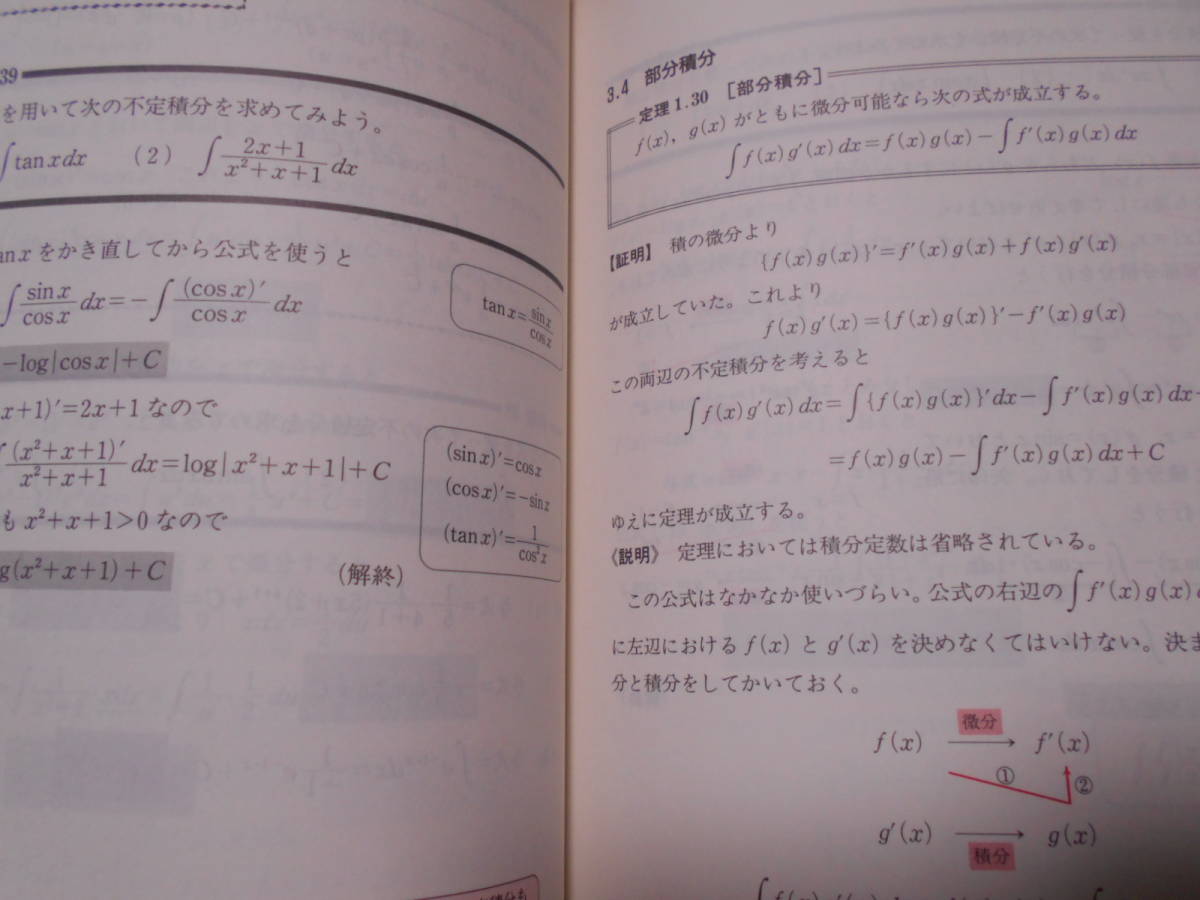 39
を用いて次の不定積分を求めてみよう。
∫tan x dx (2) ∫ (2x+1)/(x²+x+1) dx
an x をかき直してから公式を使うと
∫ sin x/cos x dx = −∫ (cos x)′/cos x dx
tan x = sin x/cos x
−log|cos x|+C
x+1)′=2x+1 なので
(x²+x+1)′/(x²+x+1) dx = log|x²+x+1|+C
(sin x)′=cos x
(cos x)′=−sin x
(tan x)′= 1/cos²x
も x²+x+1>0 なので
g(x²+x+1)+C
(解終)
3.4 部分積分
定理1.30 [部分積分]
f(x), g(x) がともに微分可能なら次の式が成立する。
∫f(x)g′(x)dx=f(x)g(x)−∫f′(x)g(x)dx
【証明】 積の微分より
{f(x)g(x)}′=f′(x)g(x)+f(x)g′(x)
が成立していた。これより
f(x)g′(x)={f(x)g(x)}′−f′(x)g(x)
この両辺の不定積分を考えると
∫f(x)g′(x)dx=∫{f(x)g(x)}′dx−∫f′(x)g(x)dx
=f(x)g(x)−∫f′(x)g(x)dx+C
ゆえに定理が成立する。
《説明》 定理においては積分定数は省略されている。
この公式はなかなか使いづらい。公式の右辺の∫f′(x)g(x)
に左辺における f(x) と g′(x) を決めなくてはいけない。決ま
分と積分をしてかいておく。
微分
f(x) → f′(x)
① ②
g′(x) → g(x)
積分